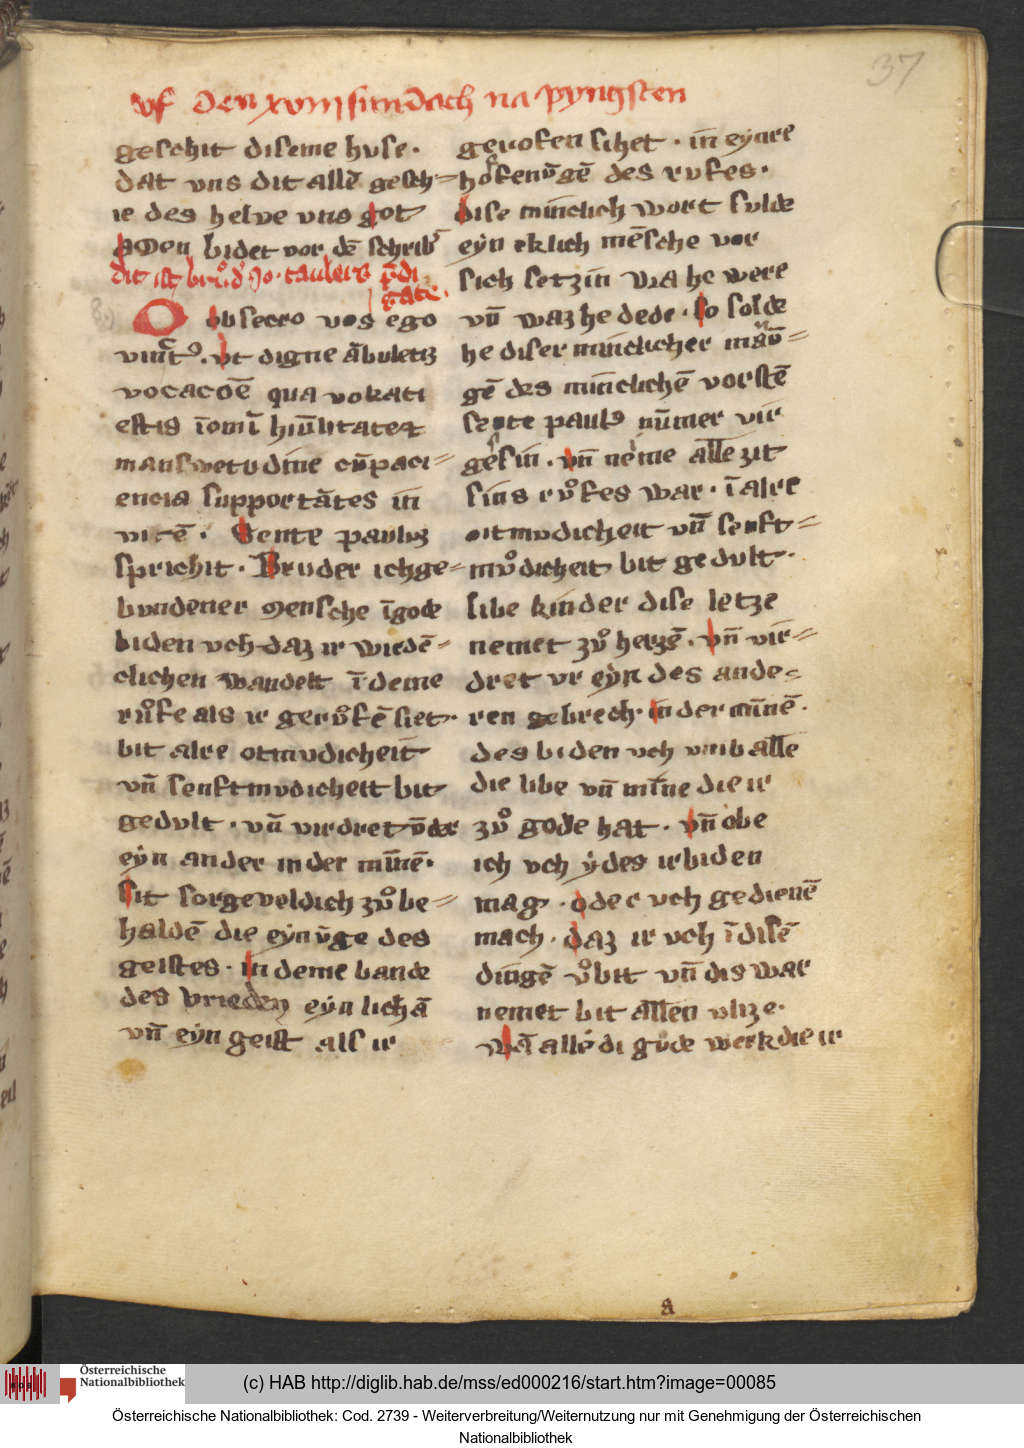 37
vf den xviij sundach na pyngsten
geschit diseme huse.
dat uns dit allē gesch=
ie des helve uns got
amen bidet vor dē schrib'
dit ist brůd' Jo. taulers p̄di
gate.
Obsecro vos ego
vinct9. vt digne ābuletis
vocacōē qua vokati
estis ī omī hūilitate et
mansvetudine cūpaci=
encia supportātes in
vicē. Sente paulus
sprichit. Bruder ich ge=
bundener mensche ī gode
biden vch daz ir wirdē=
clichen wandelt ī deme
růfe als ir gerůfē siet.
bit alre otmvdicheit
vn̄ senftmvdicheit bit
gedvlt. vn̄ virdret v̄der
eẏn ander in der mīnē.
Sit sorgeveldich zů be=
haldē die eẏnv̄ge des
geistes. in deme bande
des vrieden eẏn lichā
vn̄ eẏn geist als ir
gerofen sihet. in eẏnre
hoffenūgē des rufes.
dise minclich wort sulde
eẏn eklich mēsche vor
sich setzin wa he were
vn̄ waz he dede. so solde
he diser minclicher manv̄=
gē des minclichē vorstē
sente pauls nūmer vir
gessin. vn̄ neme alle zit
sins růfes war. ī alre
oitmvdicheit vn̄ senft=
můdicheit bit gedvlt.
libe kinder dise letze
nemet zů herzē. vn̄ vir=
dret vr eẏn des ande=
ren gebrech. in der mīnē.
des biden vch vmb alle
die libe vn̄ mīne die ir
zů gode hat. vn̄ obe
ich vch ẏdes irbiden
mag. oder vch gedienē
mach. daz ir vch ī disē
dingē ůbit vn̄ dis war
nemet bit allen vlize.
wā alle di gůde werk die ir
a
Österreichische
Nationalbibliothek
(c) HAB http://diglib.hab.de/mss/ed000216/start.htm?image=00085
Österreichische Nationalbibliothek: Cod. 2739 - Weiterverbreitung/Weiternutzung nur mit Genehmigung der Österreichischen
Nationalbibliothek